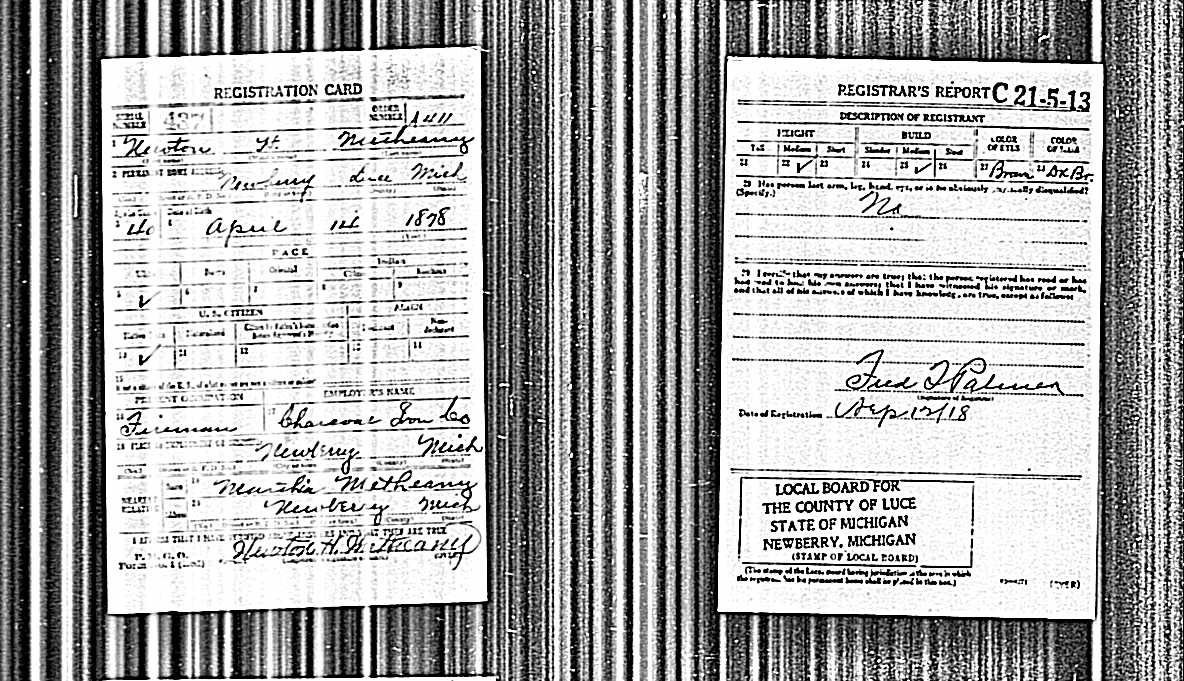 REGISTRATION CARD
SERIAL NUMBER 437 ORDER NUMBER A 411
1 Newton H. Metheany
2 PERMANENT HOME ADDRESS
Newberry Luce Mich
Date of Birth
3 40 4 April 14 1878
RACE
Oriental Indian
5 ✓ 6 7 8 9
U. S. CITIZEN ALIEN
Naturalized
10 ✓ 11 12 13 14
15
PRESENT OCCUPATION EMPLOYER'S NAME
16 Fireman 17 Charcoal Iron Co
18
Newberry Mich
NEAREST RELATIVE Name 19 Martha Metheany
20 Newberry Mich
I AFFIRM THAT I HAVE VERIFIED ABOVE ANSWERS AND THAT THEY ARE TRUE
P. M. G. O.
Form Newton H. Metheany
REGISTRAR'S REPORT C 21-5-13
DESCRIPTION OF REGISTRANT
HEIGHT BUILD COLOR OF EYES COLOR OF HAIR
Tall Medium Short Slender Medium Stout
21 22 ✓ 23 24 25 ✓ 26 27 Brown 28 Dk Br.
29 Has person lost arm, leg, hand, eye, or is he obviously physically disqualified?
(Specify.) No
30 I certify that my answers are true; that the person registered has read or has
had read to him his own answers; that I have witnessed his signature or mark,
and that all of his answers of which I have knowledge are true, except as follows:
Fred T Palmer
(Signature of Registrar)
Date of Registration Sep 12/18
LOCAL BOARD FOR
THE COUNTY OF LUCE
STATE OF MICHIGAN
NEWBERRY, MICHIGAN
(STAMP OF LOCAL BOARD)
(The stamp of the Local Board having jurisdiction of the area in which
the registrant has his permanent home shall be placed in this box.)
(OVER)